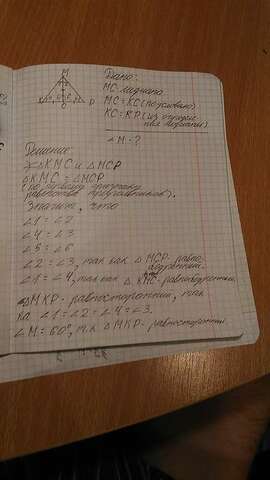 M
Дано:
MC-медиана
MC=KC (по условию)
KC= (из определения медианы)
K
C
P
∠M-?
Решение:
△KMC и △MCP
△KMC = △MCP
(по первому признаку
равенства треугольников).
Значит, что
∠1=∠2
∠4=∠3
∠5=∠6
∠2=∠3, так как △MCP-равнобедренный.
∠1=∠4, так как △KMC-равнобедренный.
△MKP-равносторонний, так
ка ∠1=∠2=∠4=∠3.
∠M=60°, т.к △MKP-равносторонний.